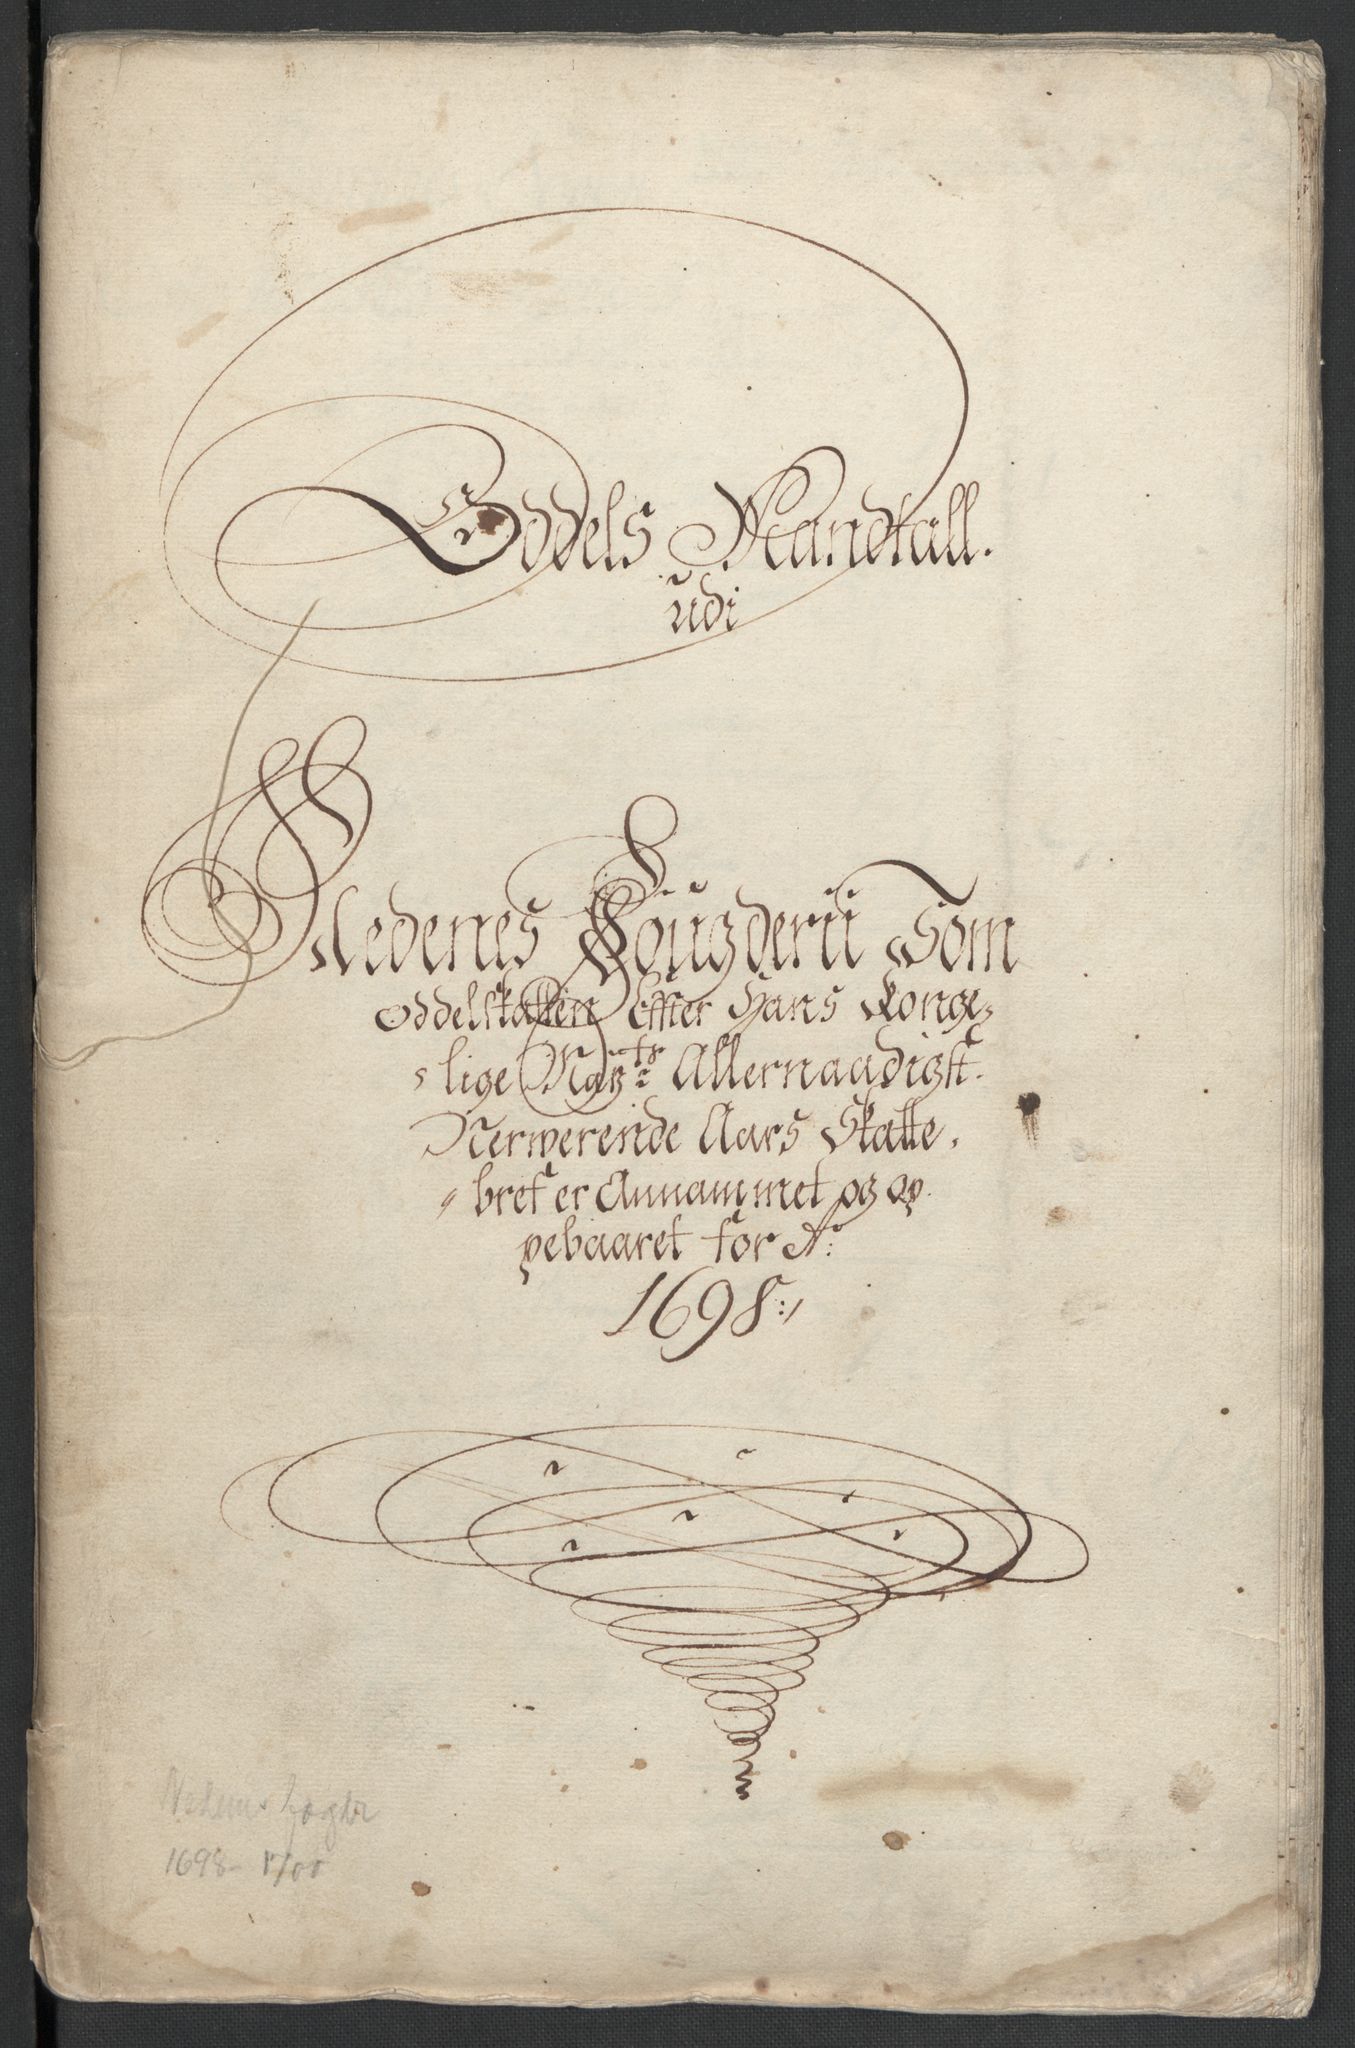 Oddels Mandtall.
udi
Nedenes Fougderii Som
Oddelskatten Effter Hans Konge-
lige Mayts: Allernaadigst
Nerwerende Aars Skatte-
bref er Annammet og op-
pebaaret for Ao:
1698:/
Nedenes fogder
1698-1700